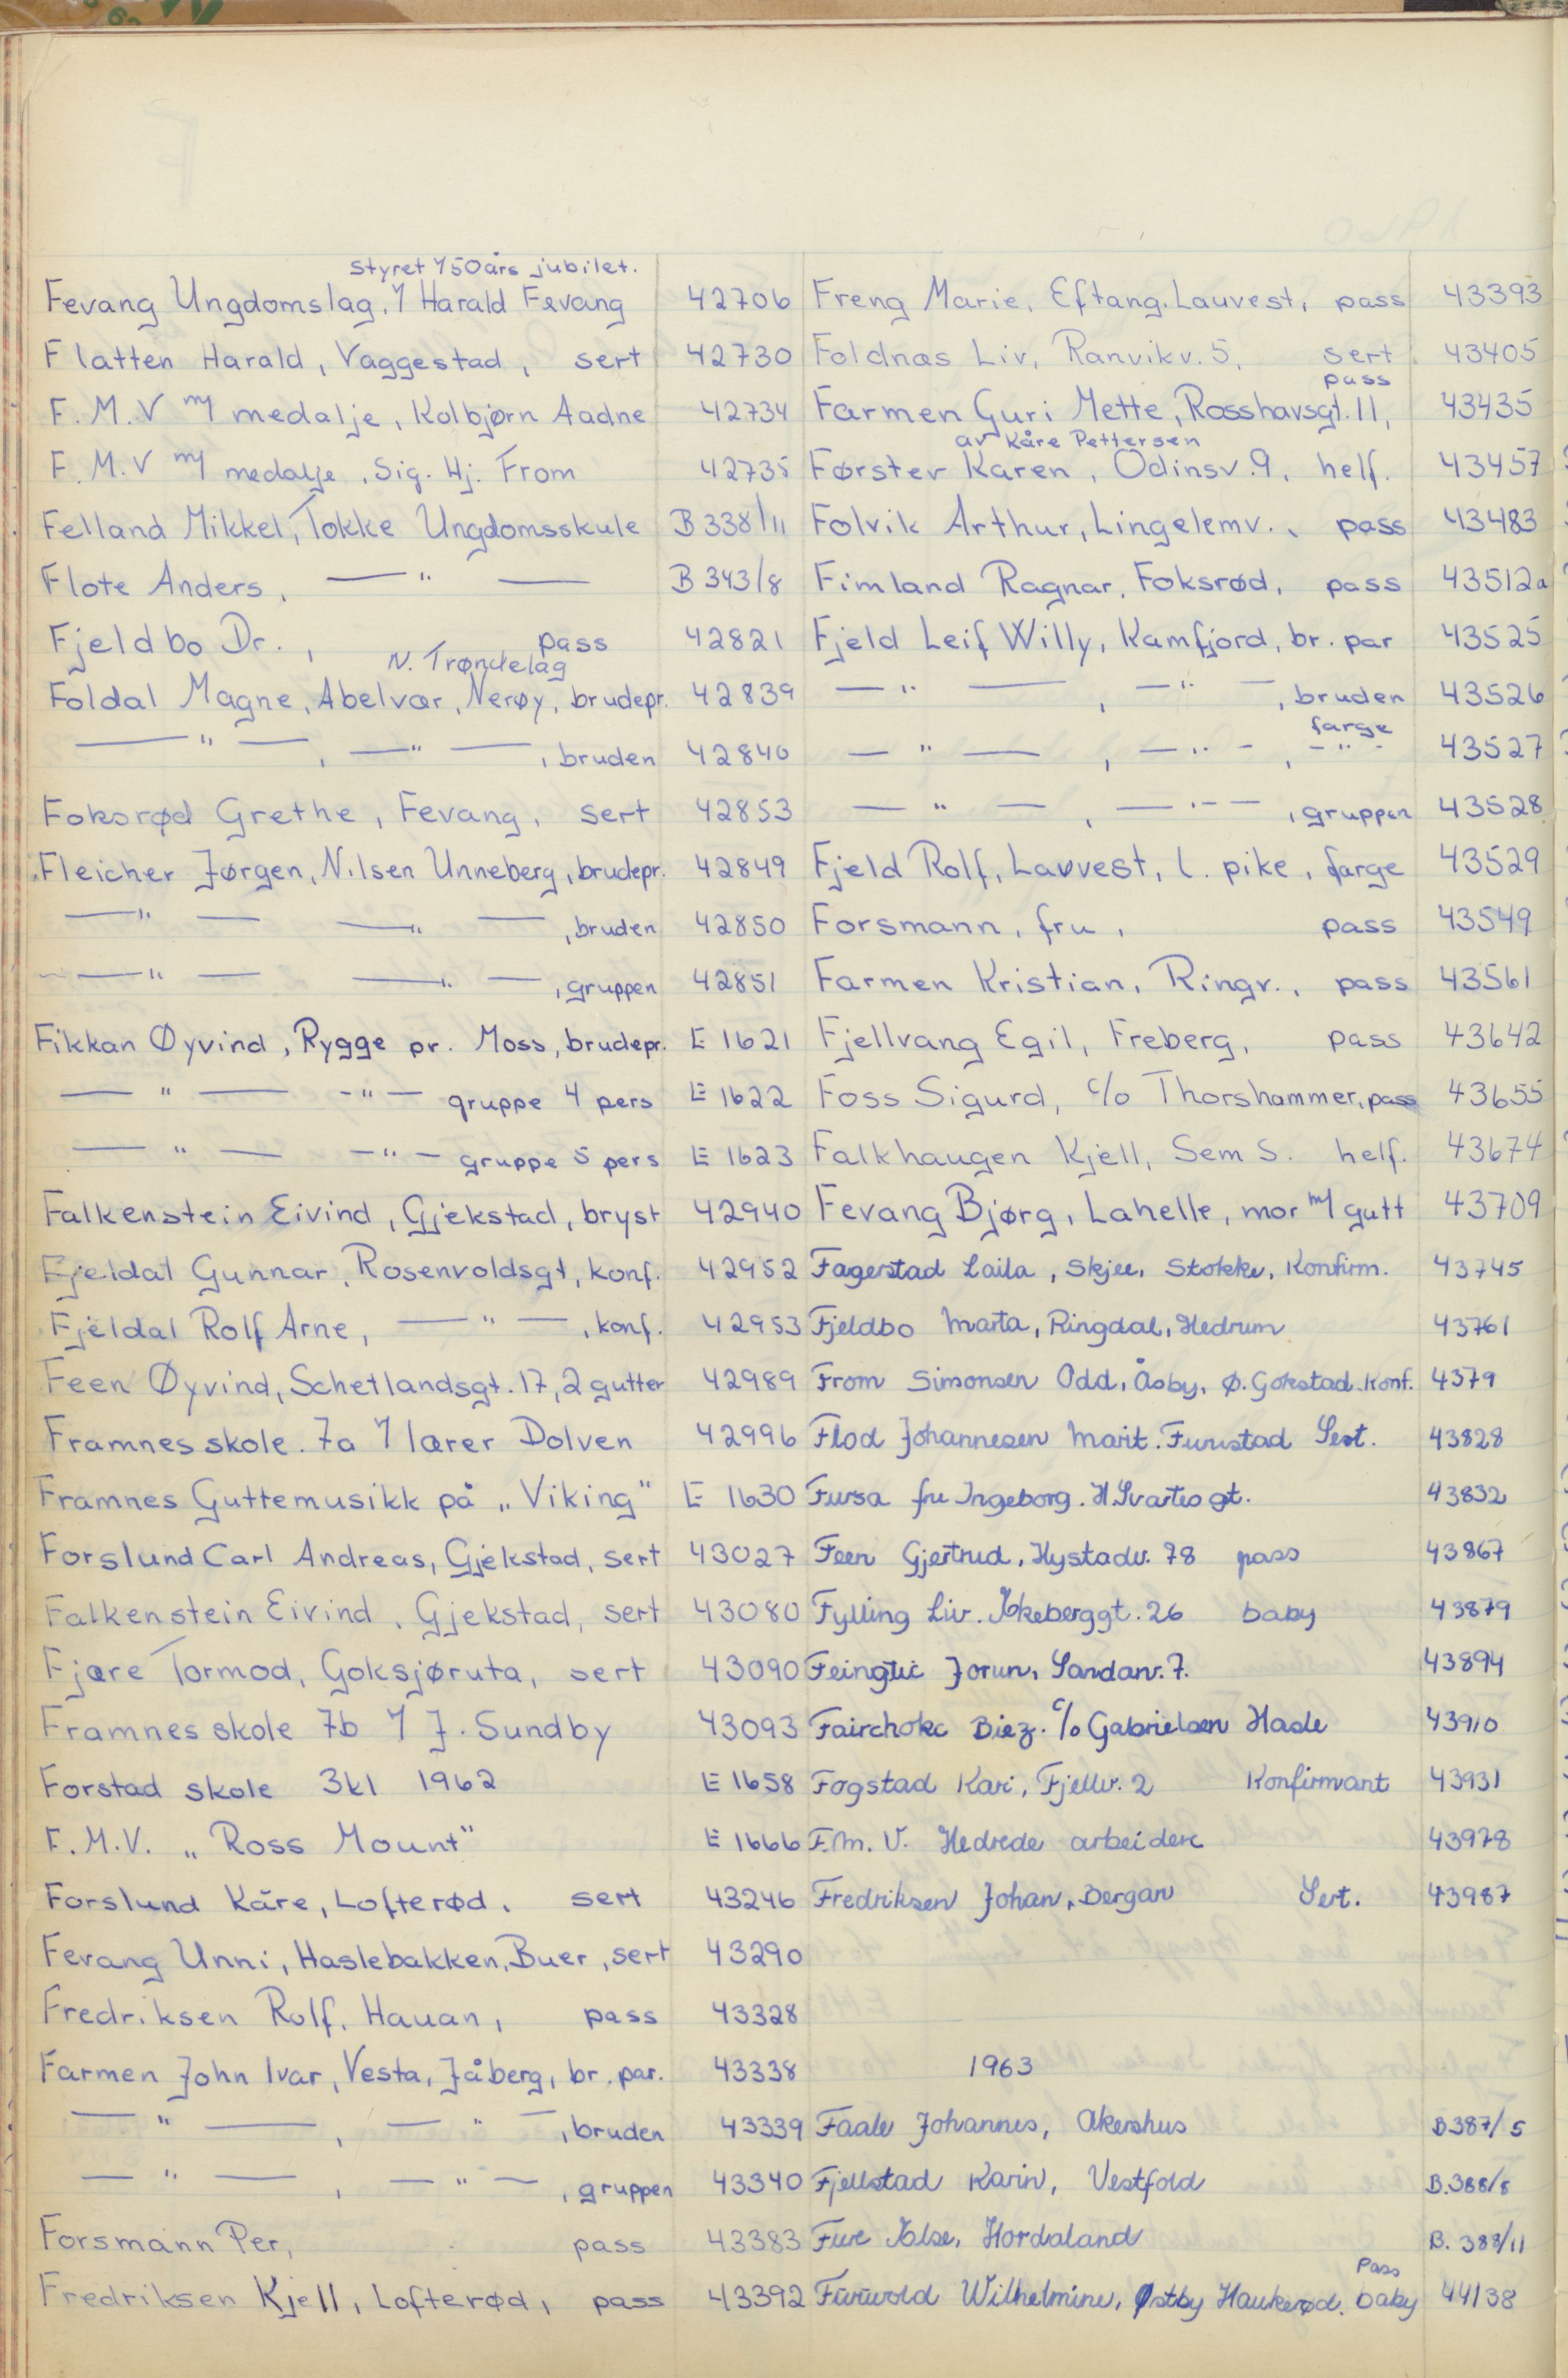 styret v/50 års jubilet.
Fevang Ungdomslag, v/ Harald Fevang 42706
Flatten Harald, Vaggestad, sert 42730
F.M.V m/ medalje, Kolbjørn Aadne 42734
F.M.V m/ medalje, Sig. Hj. From 42735
Felland Mikkel, Tokke Ungdomsskule B 338/11
Flote Anders, — " — B 343/8
Fjeldbo Dr., pass 42821
N. Trøndelag
Foldal Magne, Abelvær, Nerøy, brudepr. 42839
— " —, — " —, bruden 42840
Foksrød Grethe, Fevang, sert 42853
Fleicher Jørgen, Nilsen Unneberg, brudepr. 42849
— " — — " —, bruden 42850
— " — — " —, gruppen 42851
Fikkan Øyvind, Rygge pr. Moss, brudepr. E 1621
— " — - " — gruppe 4 pers E 1622
— " — — " — gruppe 5 pers E 1623
Falkenstein Eivind, Gjekstad, bryst 42940
Fjeldal Gunnar, Rosenvoldsgt, konf. 42952
Fjeldal Rolf Arne, — " —, konf. 42953
Feen Øyvind, Schetlandsgt. 17, 2 gutter 42989
Framnes skole. 7a v/ lærer Dolven 42996
Framnes Guttemusikk på „Viking" E 1630
Forslund Carl Andreas, Gjekstad, sert 43027
Falkenstein Eivind, Gjekstad, sert 43080
Fjære Tormod, Goksjøruta, sert 43090
Framnes skole 7b v/ J. Sundby 43093
Forstad skole 3kl 1962 E 1658
F.M.V. „Ross Mount" E 1666
Forslund Kåre, Lofterød, sert 43246
Fevang Unni, Haslebakken, Buer, sert 43290
Fredriksen Rolf, Hauan, pass 43328
Farmen John Ivar, Vesta, Jåberg, br. par. 43338
— " —, — " —, bruden 43339
— " —, — " —, gruppen 43340
Forsmann Per, pass 43383
Fredriksen Kjell, Lofterød, pass 43392
Freng Marie, Eftang. Lauvest, pass 43393
Foldnæs Liv, Ranvikv. 5, sert 43405
pass
Farmen Guri Mette, Rosshavsgt. 11, 43435
av Kåre Pettersen
Førster Karen, Odinsv. 9, helf. 43457
Folvik Arthur, Lingelemv., pass 43483
Fimland Ragnar, Foksrød, pass 43512a
Fjeld Leif Willy, Kamfjord, br. par 43525
— " —, — " —, bruden 43526
farge
— " —, — " -, - " - 43527
— " —, — " —, gruppen 43528
Fjeld Rolf, Lauvest, l. pike, farge 43529
Forsmann, fru, pass 43549
Farmen Kristian, Ringv., pass 43561
Fjellvang Egil, Freberg, pass 43642
Foss Sigurd, c/o Thorshammer, pass 43655
Falkhaugen Kjell, Sem S. helf. 43674
Fevang Bjørg, Lahelle, mor m/ gutt 43709
Fagerstad Laila, Skjee, Stokke, Konfirm. 43745
Fjeldbo Marta, Ringdal, Hedrum 43761
From Simonsen Odd, Åsby, Ø. Gokstad. Konf. 4379
Flod Johannesen Marit. Furustad Sert. 43828
Fursa fru Ingeborg. H. Svartes gt. 43832
Feen Gjertrud, Hystadv. 78 pass 43867
Fylling Liv. Kokeberggt. 26 baby 43879
Jorun, Sandarv. 7. 43894
c/o Gabrielsen Hasle 43910
Fogstad Kari, Fjellv. 2 Konfirmant 43931
F.M.V. Hedrede arbeidere 43978
Fredriksen Johan, Bergan Sert. 43987
1963
Faale Johannes, Akershus B 387/5
Fjellstad Karin, Vestfold B. 388/8
Hordaland B. 388/11
Pass
Wilhelmine, Østby Haukerød. baby 44138